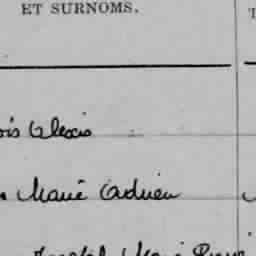 ET SURNOMS.
ois Alexis
Marie Adrien
Joseph Marie Pierre